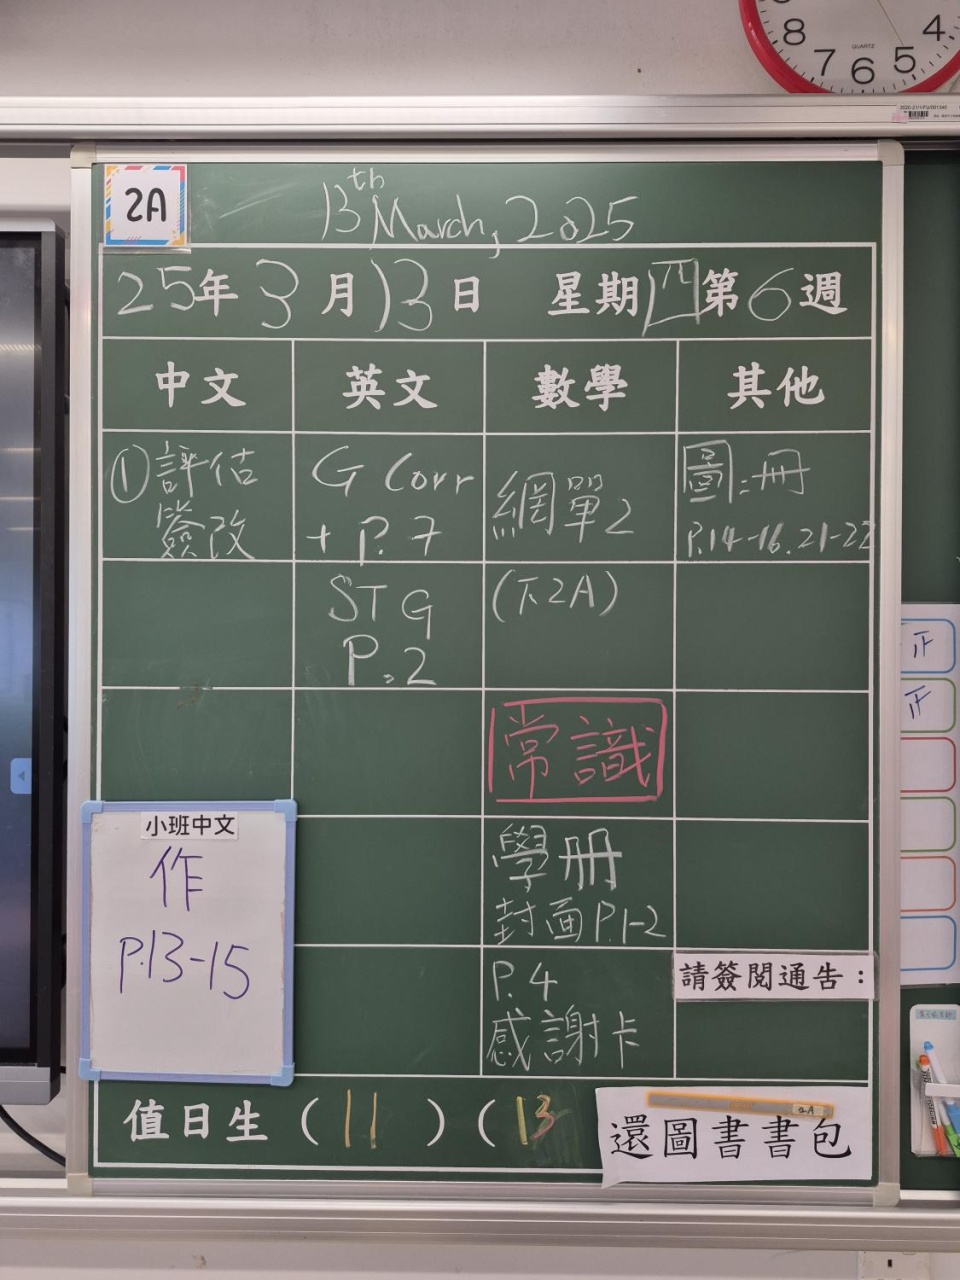 8 7 6 5 4
QUARTZ
2A
13th March, 2025
25年3月13日 星期四第6週
中文 英文 數學 其他
①評估
簽改
G Corr
+ P.7
網單2
圖:冊
P.14-16.21-22
STG
P.2
(下2A)
常識
學冊
封面P.1-2
P.4
感謝卡
小班中文
作
P.13-15
請簽閱通告：
值日生 (11) (13
2A
還圖書書包
正
正